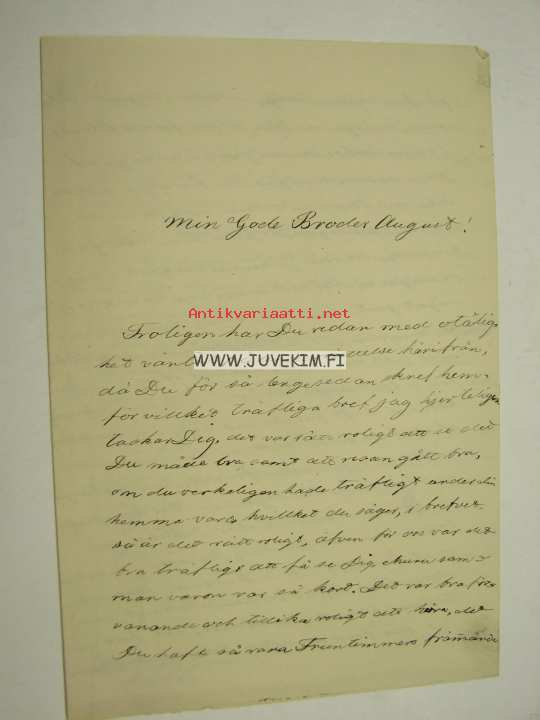 Min Gode Broder August!
Antikvariaatti.net
Troligen har Du redan med otålig-
het vänt
WWW.JUVEKIM.FI
delse härifrån,
då Du för så länge sedan skref hem.
för villket träfliga bref jag hjerteligen
tackar Dig, det var rätt roligt att se det
Du mådde bra, samt att resan gått bra,
om du verkeligen hade träfligt under din
hemma varo hvillket du säger, i brefvet
så är det rätt roligt, äfven för oss var det
bra träfligt att få se Dig ehuru sam-
man varon var så kort. Det var bra för-
vånande och tillika roligt att höra, det
Du haft så rara Fruntimmers främande